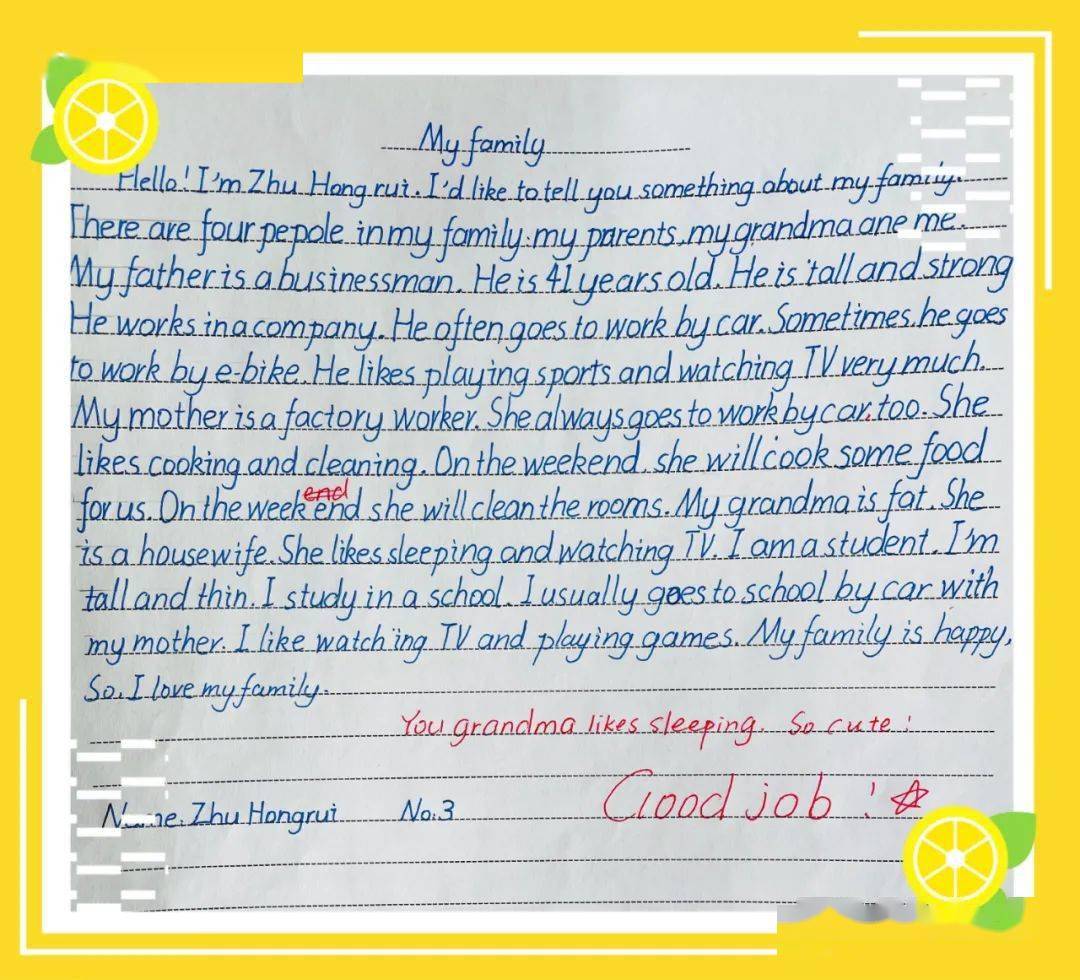 My family
Hello! I'm Zhu Hongrui. I'd like to tell you something about my family.
There are four pepole in my family: my parents, my grandma ane me.
My father is a businessman. He is 41 years old. He is tall and strong
He works in a company. He often goes to work by car. Sometimes he goes
to work by e-bike. He likes playing sports and watching TV very much.
My mother is a factory worker. She always goes to work by car, too. She
likes cooking and cleaning. On the weekend she will cook some food
end
for us. On the weekend she will clean the rooms. My grandma is fat. She
is a housewife. She likes sleeping and watching TV. I am a student. I'm
tall and thin. I study in a school. I usually goes to school by car with
my mother. I like watching TV and playing games. My family is happy,
So, I love my family.
You grandma likes sleeping. So cute!
Good job!
Name: Zhu Hongrui No.3